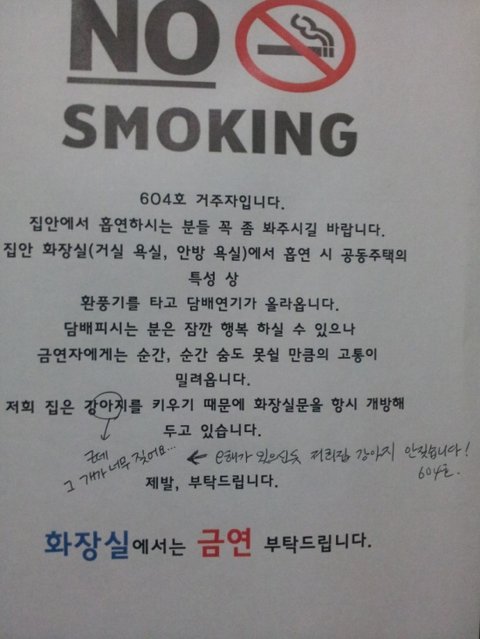 NO
SMOKING
604호 거주자입니다.
집안에서 흡연하시는 분들 꼭 좀 봐주시길 바랍니다.
집안 화장실(거실 욕실, 안방 욕실)에서 흡연 시 공동주택의
특성 상
환풍기를 타고 담배연기가 올라옵니다.
담배피시는 분은 잠깐 행복 하실 수 있으나
금연자에게는 순간, 순간 숨도 못쉴 만큼의 고통이
밀려옵니다.
저희 집은 강아지를 키우기 때문에 화장실문을 항시 개방해
두고 있습니다.
근데
그 개가 너무 짖어요...
← 오해가 있으신듯 저희집 강아지 안짖습니다!
604호.
제발, 부탁드립니다.
화장실에서는 금연 부탁드립니다.